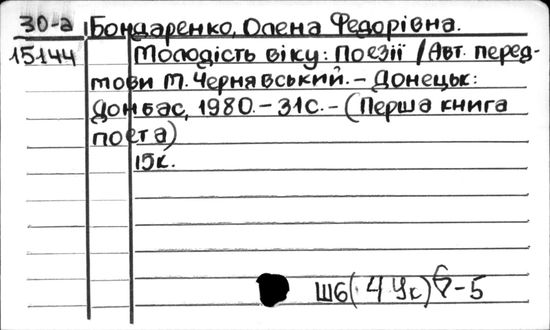 30-а Бондаренко, Олена Федорівна.
15144 Молодість віку: Поезії / Авт. перед-
мови М. Чернявський. – Донецьк:
Донбас, 1980. – 31с. – (Перша книга
поета)
15к.
Ш6(4Ук)6-5